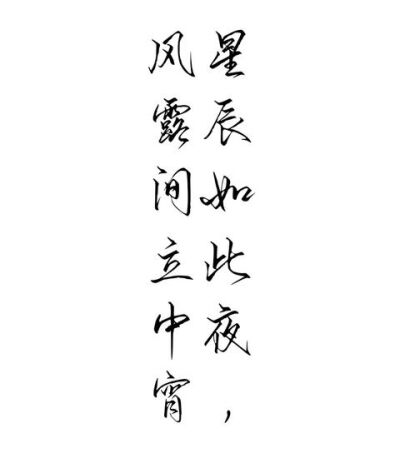 星辰如此夜，
风露间立中宵